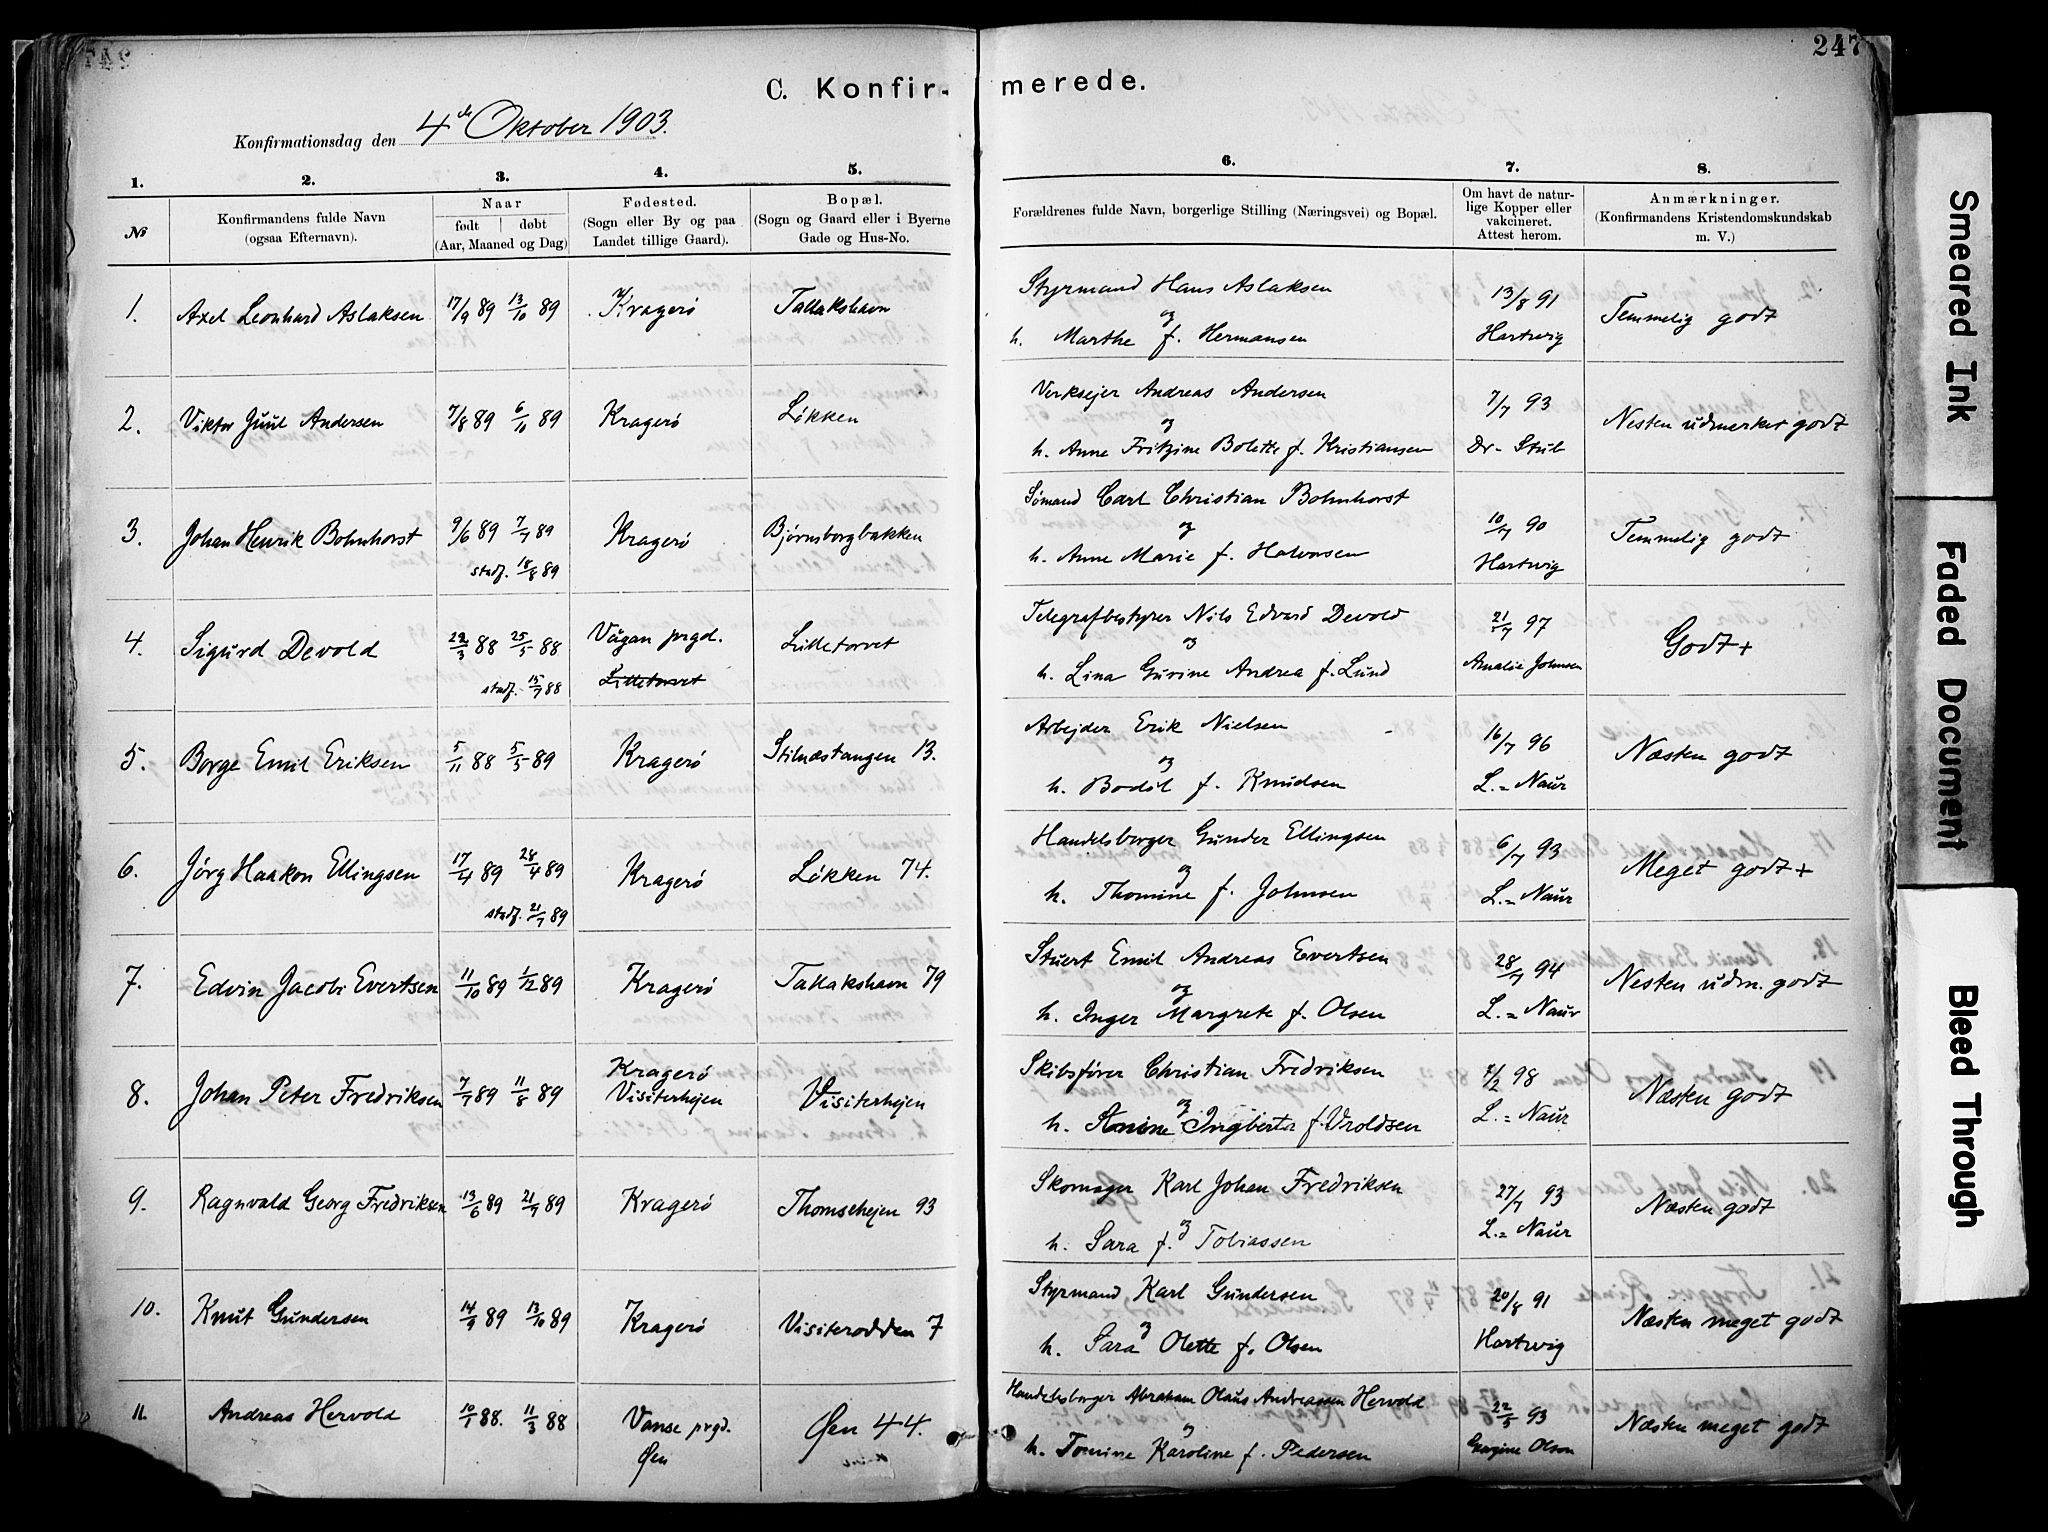 247
C. Konfirmerede.
Konfirmationsdag den 4de Oktober 1903.
1. 2. 3. 4. 5. 6. 7. 8.
№
Konfirmandens fulde Navn
(ogsaa Efternavn).
Naar
født | døbt
(Aar, Maaned og Dag)
Fødested.
(Sogn eller By og paa
Landet tillige Gaard).
Bopæl.
(Sogn og Gaard eller i Byerne
Gade og Hus-No.
Forældrenes fulde Navn, borgerlige Stilling (Næringsvei) og Bopæl.
Om havt de natur-
lige Kopper eller
vakcineret.
Attest herom.
Anmærkninger.
(Konfirmandens Kristendomskundskab
m. V.)
1. Axel Leonhard Aslaksen 17/9 89 13/10 89 Kragerö Tallakshavn
Styrmand Hans Aslaksen
og
h. Marthe f. Hermansen
13/8 91
Hartwig
Temmelig godt
2. Viktor Juul Andersen 7/8 89 6/10 89 Kragerö Løkken
Verksejer Andreas Andersen
og
h. Anne Fritzine Bolette f. Kristiansen
7/7 93
Dr. Stub
Nesten udmerket godt
3. Johan Henrik Bohnhorst 9/6 89 7/7 89 Kragerö Bjørnsborgbakken
stadf. 18/8 89
Sömand Carl Christian Bohnhorst
og
h. Anne Marie f. Halvorsen
10/7 90
Hartwig
Temmelig godt
4. Sigurd Devold 22/3 88 25/5 88 Vågan prgd. Lilletorvet
stadf. 15/7 88 Lilletorvet
Telegrafbestyrer Nils Edvard Devold
og
h. Lina Gurine Andrea f. Lund
21/7 97
Amalie Johnsen
Godt +
5. Borge Emil Eriksen 5/11 88 5/5 89 Kragerö Stilnæstangen 13.
Arbejder Erik Nielsen
og
h. Bodöl f. Knudsen
16/7 96
L. = Naur
Næsten godt
6. Jörg Haakon Ellingsen 17/4 89 28/4 89 Kragerö Løkken 74.
stadf. 21/7 89
Handelsborger Gunder Ellingsen
og
h. Thomine f. Johnsen
6/7 93
L. = Naur
Meget godt +
7. Edvin Jacobi Evertsen 11/10 89 1/12 89 Kragerö Tallakshavn 79
Stuert Emil Andreas Evertsen
og
h. Inger Margrete f. Olsen
28/7 94
L. = Naur
Nesten udm. godt
8. Johan Peter Fredriksen 7/7 89 11/8 89 Kragerö
Visiterhejen Visiterhejen
Skibsfører Christian Fredriksen
og
h. Ingberta f. Uroldsen
7/2 98
L. = Naur
Næsten godt
9. Ragnvald Georg Fredriksen 13/6 89 21/7 89 Kragerö Thomsehejen 93
Skomager Karl Johan Fredriksen
og
h. Sara f. Tobiassen
27/7 93
L. = Naur
Næsten godt
10. Knut Gundersen 14/9 89 13/10 89 Kragerö Visiterodden 7
Styrmand Karl Gundersen
og
h. Sara Olette f. Olsen
20/8 91
Hartwig
Næsten meget godt
11. Andreas Hervold 10/1 88. 11/3 88 Vanse prgd.
Øen Øen 44.
Handelsborger Abraham Olaus Andreassen Hervold
og
h. Tomine Karoline f. Pedersen
22/5 93
Olson
Næsten meget godt
Smeared Ink
Faded Document
Bleed Through